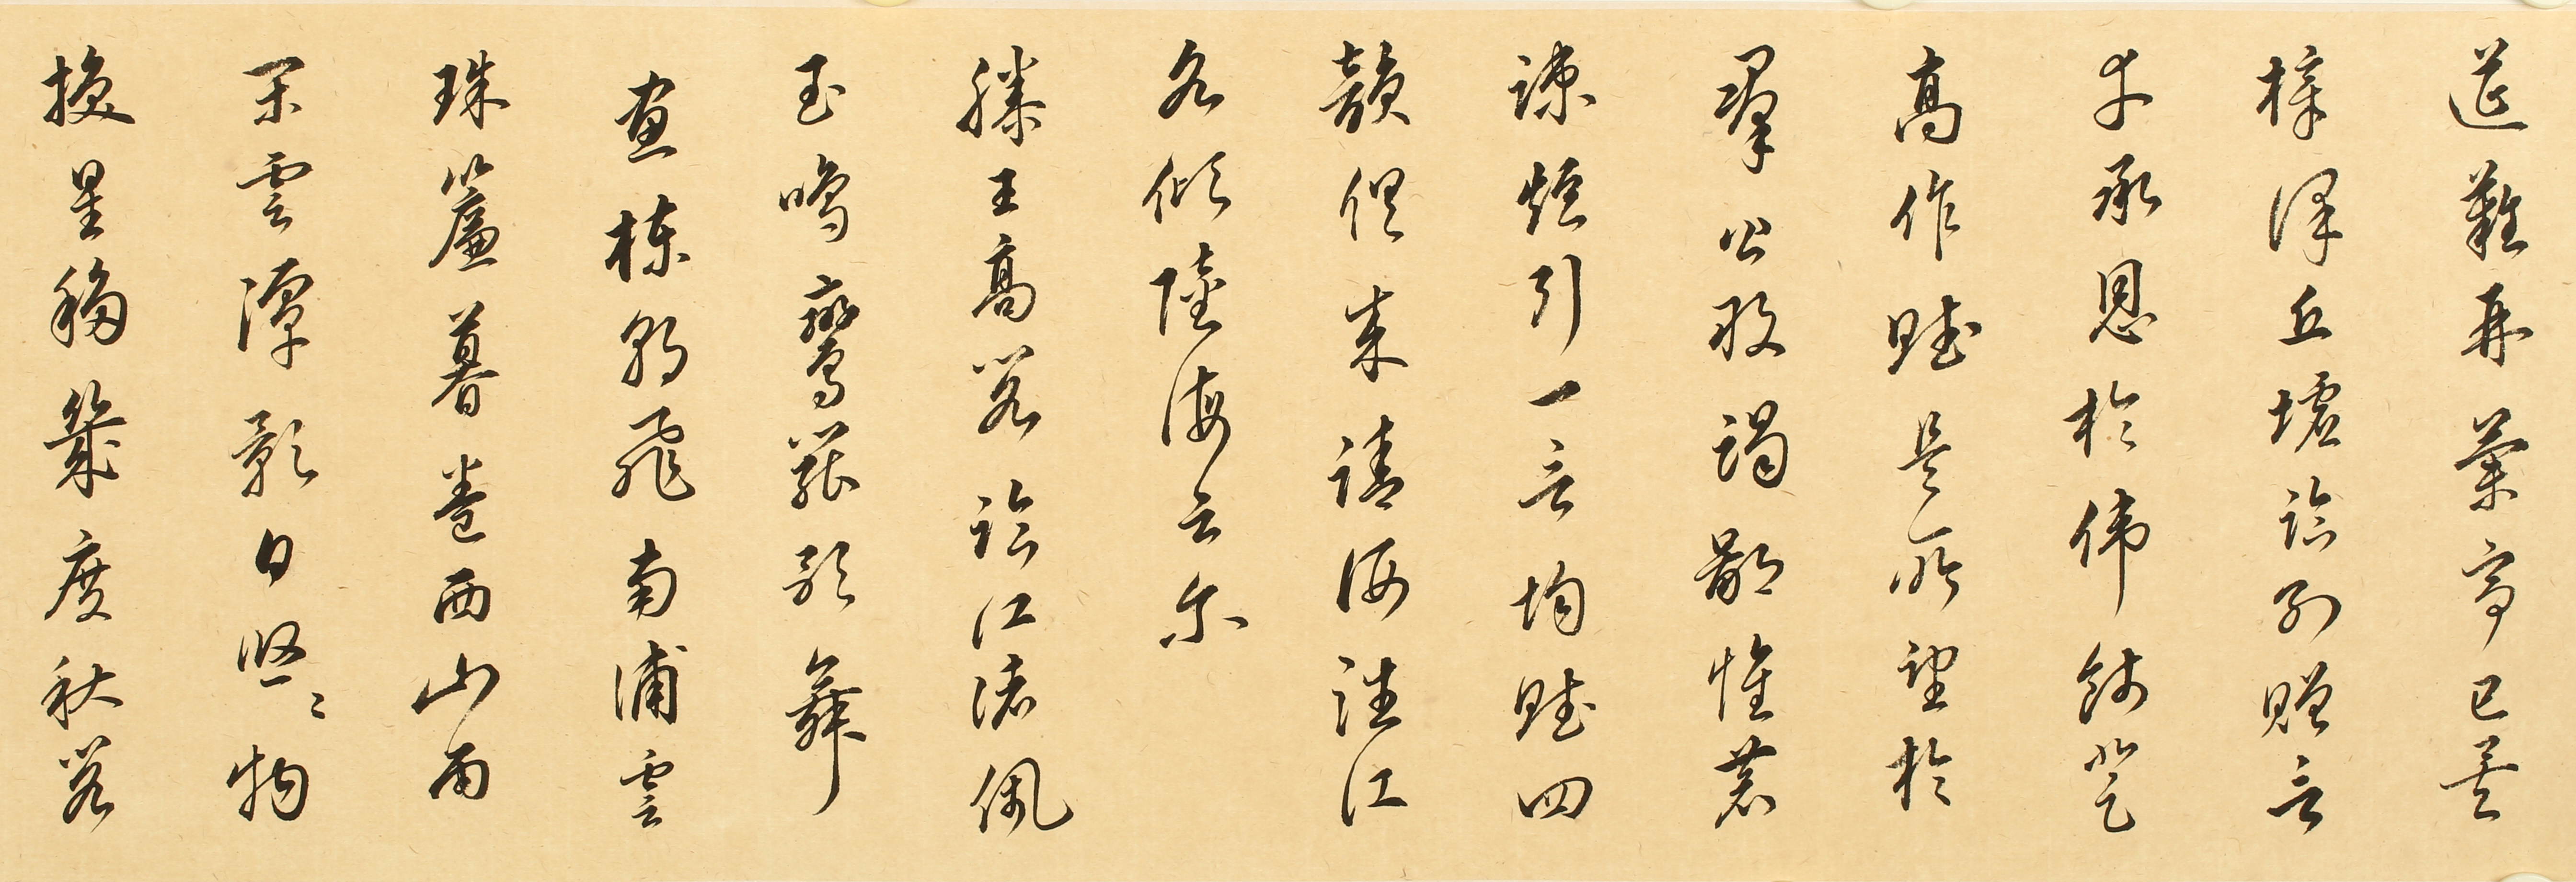 筵難再蘭亭已矣
梓澤丘墟臨別贈言
幸承恩於偉餞登
高作賦是所望於
羣公敢竭鄙惟恭
疎短引一言均賦四
韻俱成請洒潘江
各傾陸海云尔
滕王高閣臨江渚佩
玉鳴鸞罷歌舞
畫棟朝飛南浦雲
珠簾暮卷西山雨
閑雲潭影日悠〻物
換星移幾度秋閣